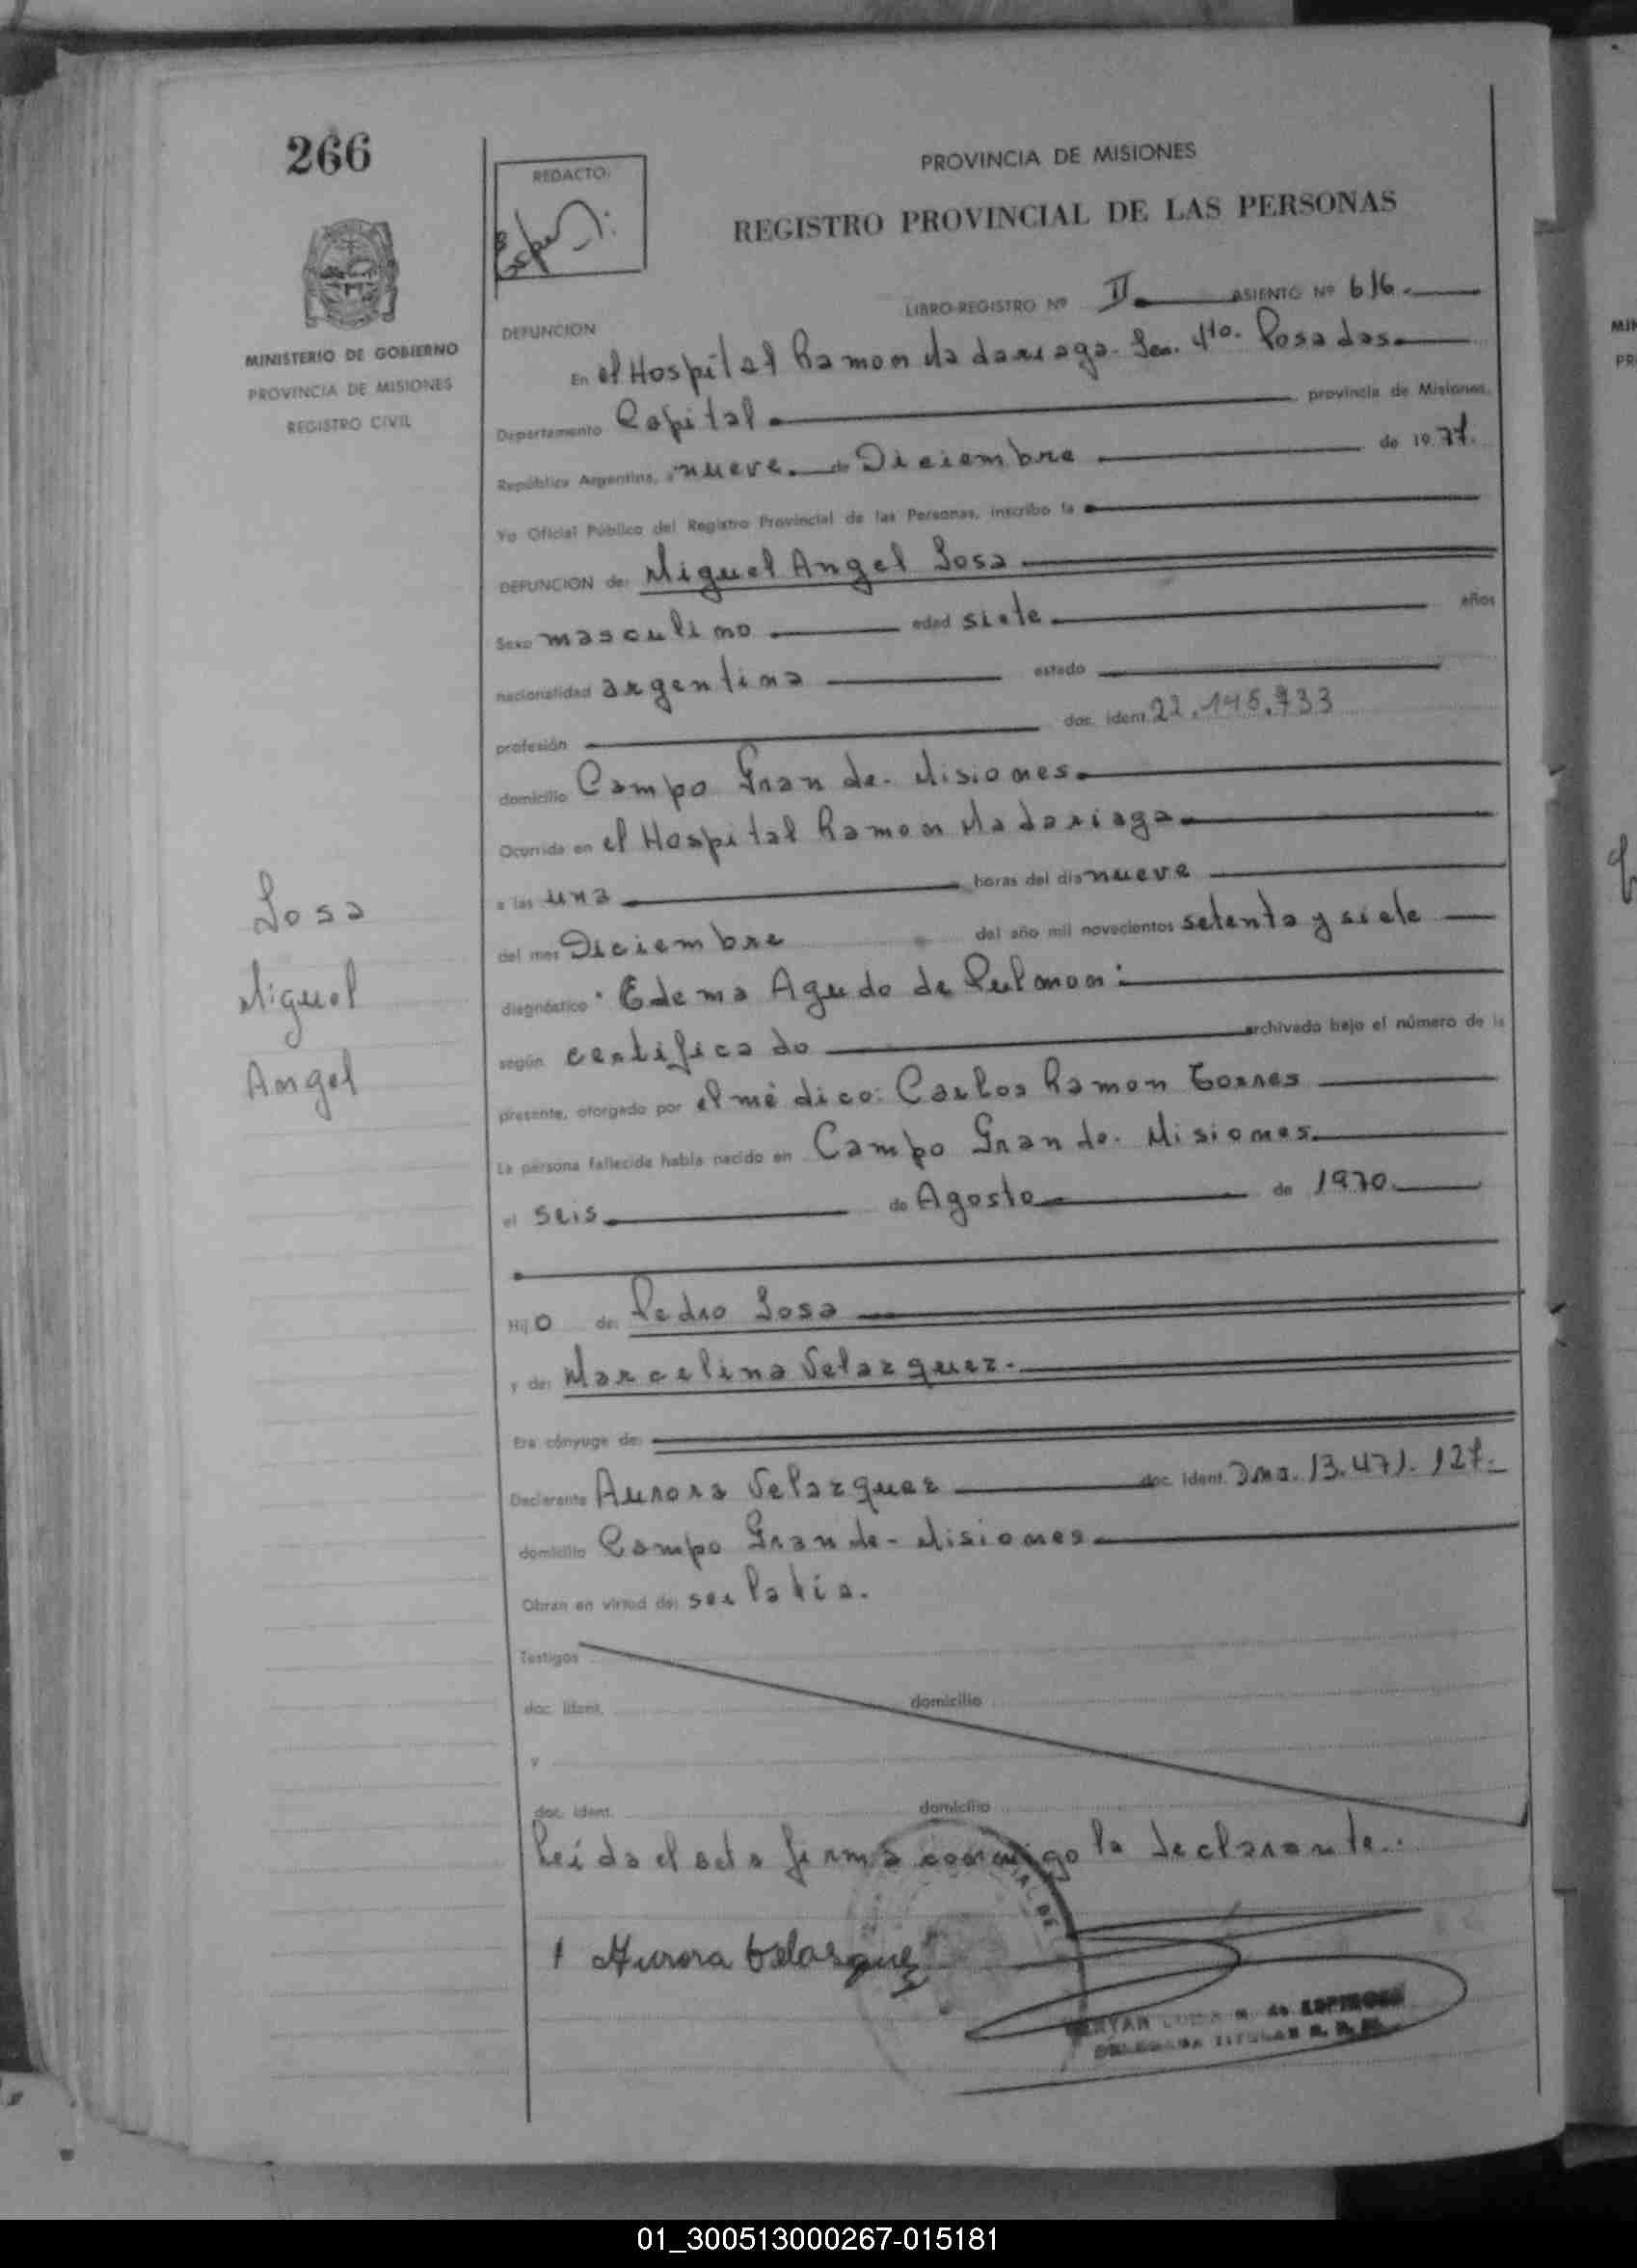 266
REDACTO:
PROVINCIA DE MISIONES
REGISTRO PROVINCIAL DE LAS PERSONAS
MINISTERIO DE GOBIERNO
PROVINCIA DE MISIONES
REGISTRO CIVIL
LIBRO-REGISTRO Nº II ASIENTO Nº 616.
DEFUNCION
En el Hospital Ramon Madariaga. Sec. 4to. Posadas
Departamento Capital provincia de Misiones,
República Argentina, a nueve. de Diciembre de 19 77.
Yo Oficial Público del Registro Provincial de las Personas, inscribo la
DEFUNCION de: Miguel Angel Sosa
Sexo masculino edad siete años
nacionalidad argentina estado
profesión doc. ident. 22.145.733
domicilio Campo Grande. Misiones.
Ocurrida en el Hospital Ramon Madariaga
a las una horas del dia nueve
del mes Diciembre del año mil novecientos setenta y siete
diagnóstico Edema Agudo de Pulmon
según certificado archivado bajo el número de la
presente, otorgado por el médico: Carlos Ramon Torres
La persona fallecida había nacido en Campo Grande. Misiones.
el seis de Agosto de 1970.
Hijo de: Pedro Sosa
y de: Marcelina Velazquez.
Era cónyuge de:
Declarante Aurora Velazquez doc. ident. Dna. 13.471.127.
domicilio Campo Grande - Misiones
Obran en virtud de: ser la tía.
Testigos
doc. ident. domicilio
y
doc. ident. domicilio
Leída el acta firma conmigo la declarante.
Aurora Velasquez
DELEGADA TITULAR
Sosa
Miguel
Angel
01_300513000267-015181